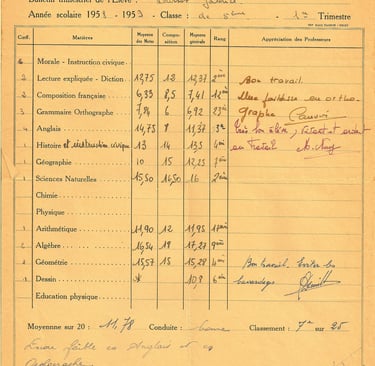 Bulletin trimestriel de l'Elève:
Année scolaire 1951 - 1953 - Classe: de 5ème 1er Trimestre
Coef. Matières Moyenne des Notes Composition Moyenne générale Rang Appréciation des Professeurs
6 Morale - Instruction civique
2 Lecture expliquée - Diction 12,75 12 12,37 2ème Bon travail.
2 Composition française 6,33 8,5 7,41 12ème Une faiblesse en ortho-
Grammaire Orthographe 7,84 6 6,92 23ème graphe
4 Anglais 14,75 8 11,37 Très bon élève,
1 Histoire et instruction civique 13 14 13,5 4ème au travail
1 Géographie 10 15 12,25 7ème
1 Sciences Naturelles 15,50 16,50 16 2ème
Chimie
Physique
Arithmétique 11,90 12 11,95 17ème
Algèbre 16,54 18 17,27 9ème
Géométrie 15,57 15 15,28 4ème Bon travail. Eviter les
1 Dessin 10,9 6ème bavardages
Education physique
Moyenne sur 20: 11,78 Conduite: bonne Classement: 7e sur 25
faible en Anglais et en